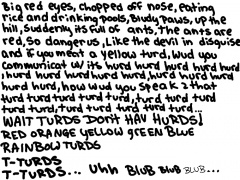 Big red eyes, chopped off nose, eating
rice and drinking pools, Bludy paws, up the
hill, Suddenly its full of ants, the ants are
red, so dangerus, Like the devil in disguise
and if you meet a yellow turd, Wud you
communicat w/ its hurd hurd hurd hurd hurd
, hurd hurd hurd hurd hurd, hurd hurd hurd
hurd hurd, how wud you speak 2 that
turd turd turd turd turd, turd turd turd
turd turd, turd turd turd turd...
WAIT TURDS DON't HAV HURDS!
RED ORANGE YELLOW GREEN BLUE
RAINBOW TURDS
T-TURDS
T-TURDS... Uhh BLUB BLUB BLUB...